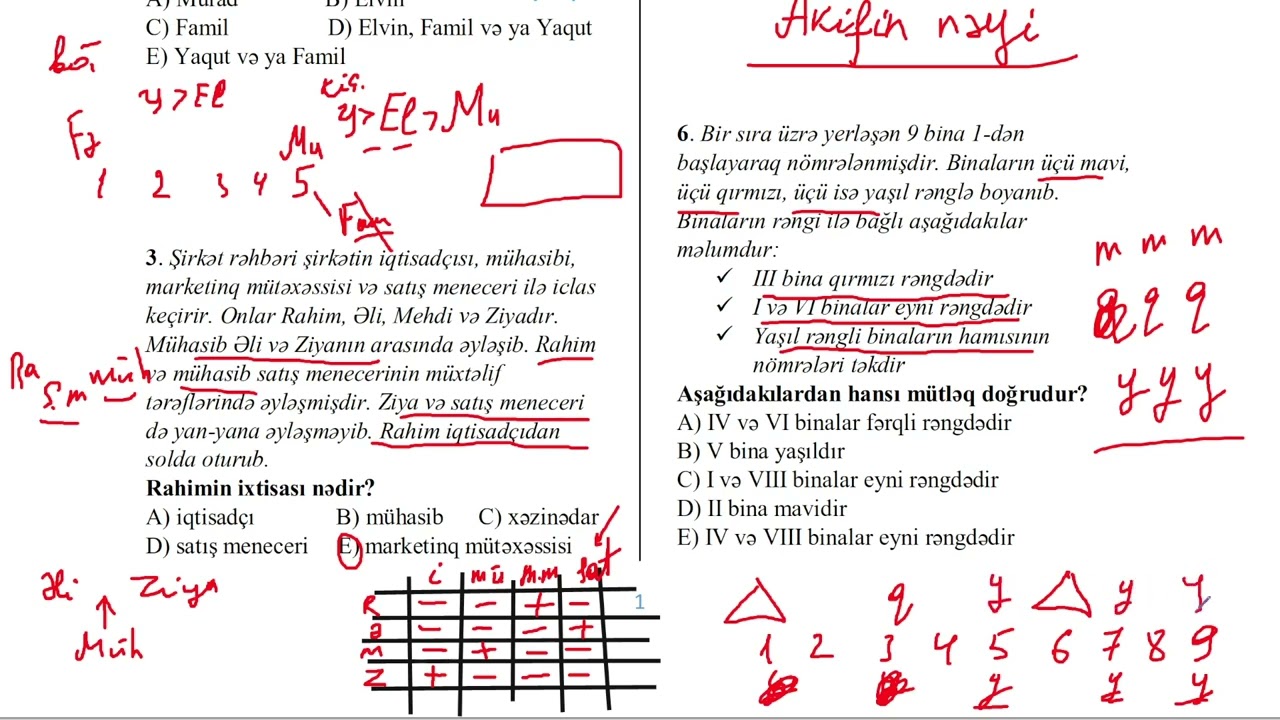 A) Murad B) Elvin
C) Famil D) Elvin, Famil və ya Yaqut
E) Yaqut və ya Famil
y > El
kiç.
y > El > Mu
Mu
1 2 3 4 5
Fam
3. Şirkət rəhbəri şirkətin iqtisadçısı, mühasibi,
marketinq mütəxəssisi və satış meneceri ilə iclas
keçirir. Onlar Rahim, Əli, Mehdi və Ziyadır.
Mühasib Əli və Ziyanın arasında əyləşib. Rahim
və mühasib satış menecerinin müxtəlif
tərəflərində əyləşmişdir. Ziya və satış meneceri
də yan-yana əyləşməyib. Rahim iqtisadçıdan
solda oturub.
Ra ş.m müh
Rahimin ixtisası nədir?
A) iqtisadçı B) mühasib C) xəzinədar
D) satış meneceri E) marketinq mütəxəssisi
Əli Ziya
Müh
i mü m.m sat
R − − + −
Ə − − − +
M − + − −
Z + − − −
1
Akifin nəyi
6. Bir sıra üzrə yerləşən 9 bina 1-dən
başlayaraq nömrələnmişdir. Binaların üçü mavi,
üçü qırmızı, üçü isə yaşıl rənglə boyanıb.
Binaların rəngi ilə bağlı aşağıdakılar
məlumdur:
✓ III bina qırmızı rəngdədir
✓ I və VI binalar eyni rəngdədir
✓ Yaşıl rəngli binaların hamısının
nömrələri təkdir
m m m
q q
y y y
Aşağıdakılardan hansı mütləq doğrudur?
A) IV və VI binalar fərqli rəngdədir
B) V bina yaşıldır
C) I və VIII binalar eyni rəngdədir
D) II bina mavidir
E) IV və VIII binalar eyni rəngdədir
q y y y
1 2 3 4 5 6 7 8 9
y y y